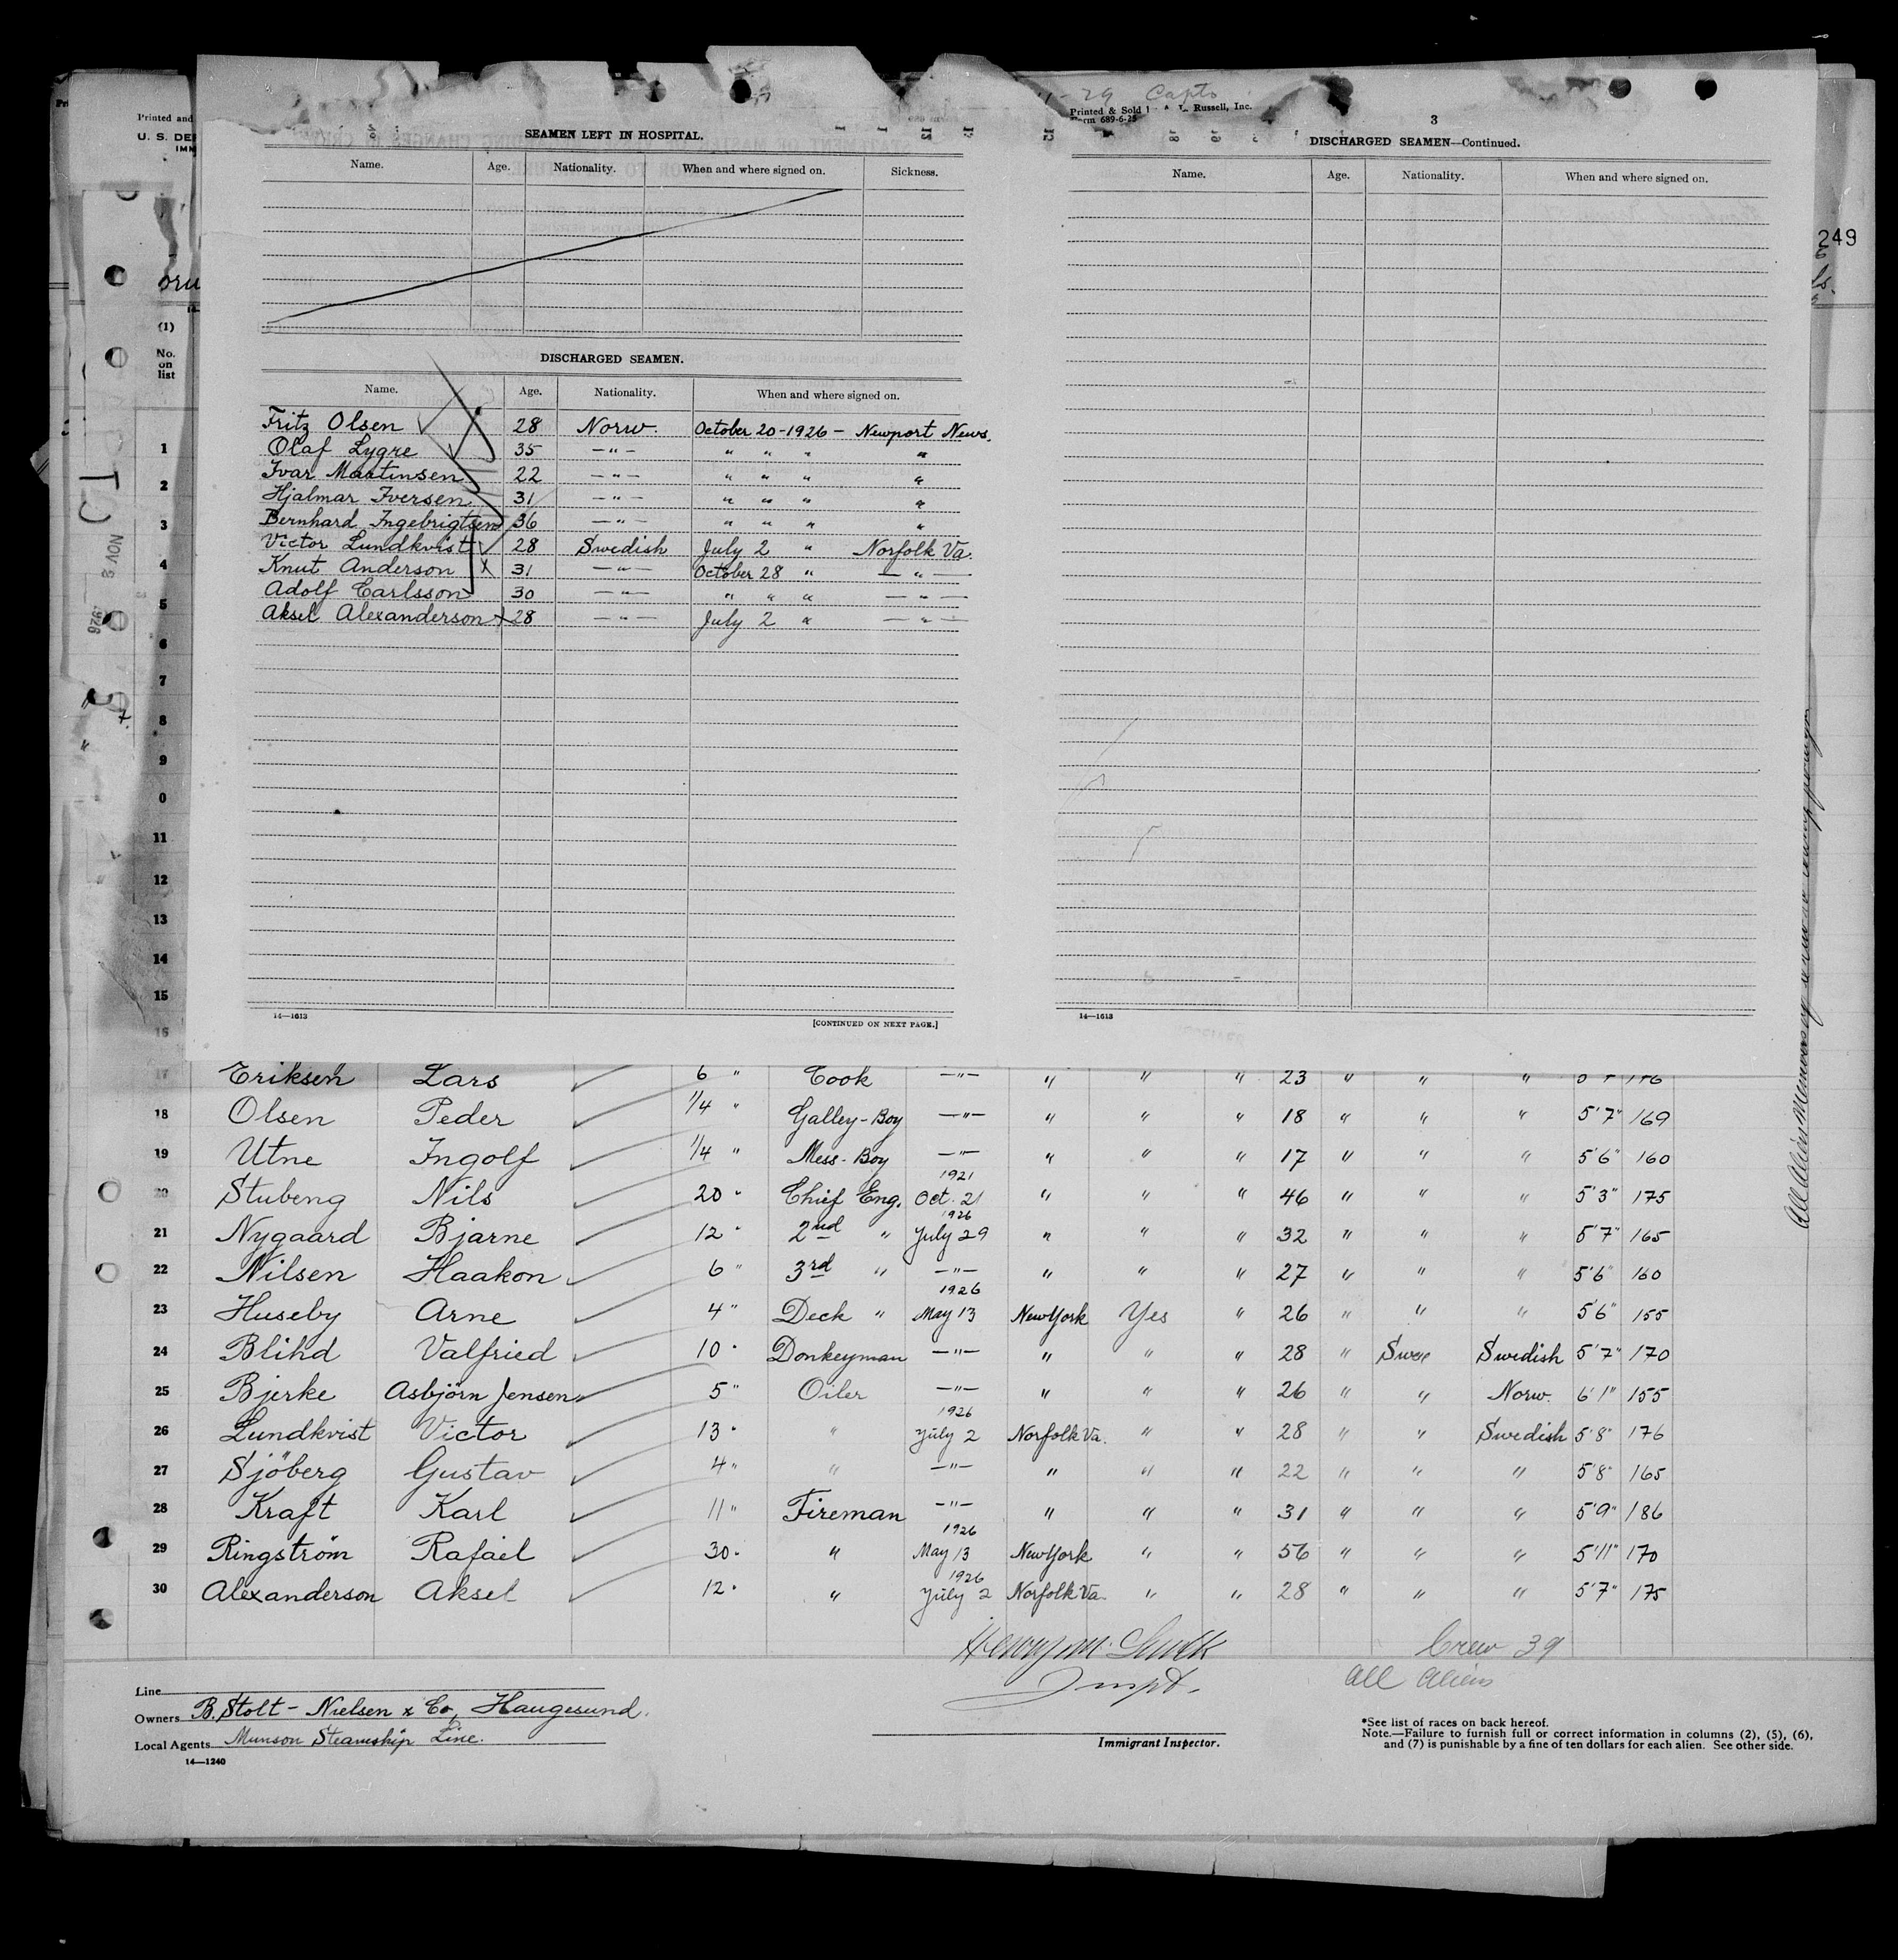 Printed and
U. S. DE
IMM
(1)
No.
on
list
NOV 8 1926
249
SEAMEN LEFT IN HOSPITAL.
Name. Age. Nationality. When and where signed on. Sickness.
DISCHARGED SEAMEN.
Name. Age. Nationality. When and where signed on.
Fritz Olsen 28 Norw. October 20-1926 - Newport News.
Olaf Lygre 35 -"- " " " "
Ivar Martinsen 22 -"- " " " "
Hjalmar Iversen 31 -"- " " " "
Bernhard Ingebrigtsen 36 -"- " " " "
Victor Lundkvist 28 Swedish July 2 " Norfolk Va.
Knut Anderson 31 -"- October 28 " -"-
Adolf Carlsson 30 -"- " " " -"-
Aksel Alexanderson 28 -"- July 2 " -"-
14—1613 [CONTINUED ON NEXT PAGE.]
Printed & Sold Russell, Inc.
Form 689-6-25
3
DISCHARGED SEAMEN—Continued.
Name. Age. Nationality. When and where signed on.
14—1613
1
2
3
4
5
6
7
8
9
0
11
12
13
14
15
16
17 Eriksen Lars 6 " Cook -"- " " " 23 " " "
18 Olsen Peder 1/4 " Galley-Boy -"- " " " 18 " " " 5'7" 169
19 Utne Ingolf 1/4 " Mess-Boy -"- " " " 17 " " " 5'6" 160
20 Stubeng Nils 20 " Chief Eng. 1921 Oct. 21 " " " 46 " " " 5'3" 175
21 Nygaard Bjarne 12 " 2nd " 1926 July 29 " " " 32 " " " 5'7" 165
22 Nilsen Haakon 6 " 3rd " -"- " " " 27 " " " 5'6" 160
23 Huseby Arne 4 " Deck " 1926 May 13 New York Yes " 26 " " " 5'6" 155
24 Blihd Valfried 10 " Donkeyman -"- " " " 28 " Swedish 5'7" 170
25 Bjerke Asbjörn Jensen 5 " Oiler -"- " " " 26 " " Norw. 6'1" 155
26 Lundkvist Victor 13 " " 1926 July 2 Norfolk Va. " " 28 " " Swedish 5'8" 176
27 Sjöberg Gustav 4 " " -"- " " " 22 " " " 5'8" 165
28 Kraft Karl 11 " Fireman -"- " " " 31 " " " 5'9" 186
29 Ringström Rafael 30 " " 1926 May 13 New York " " 56 " " " 5'11" 170
30 Alexanderson Aksel 12 " " 1926 July 2 Norfolk Va. " " 28 " " " 5'7" 175
Crew 39
All Aliens
Line
Owners B. Stolt-Nielsen & Co, Haugesund.
Local Agents Munson Steamship Line.
14—1240
Immigrant Inspector.
*See list of races on back hereof.
Note.—Failure to furnish full or correct information in columns (2), (5), (6),
and (7) is punishable by a fine of ten dollars for each alien. See other side.